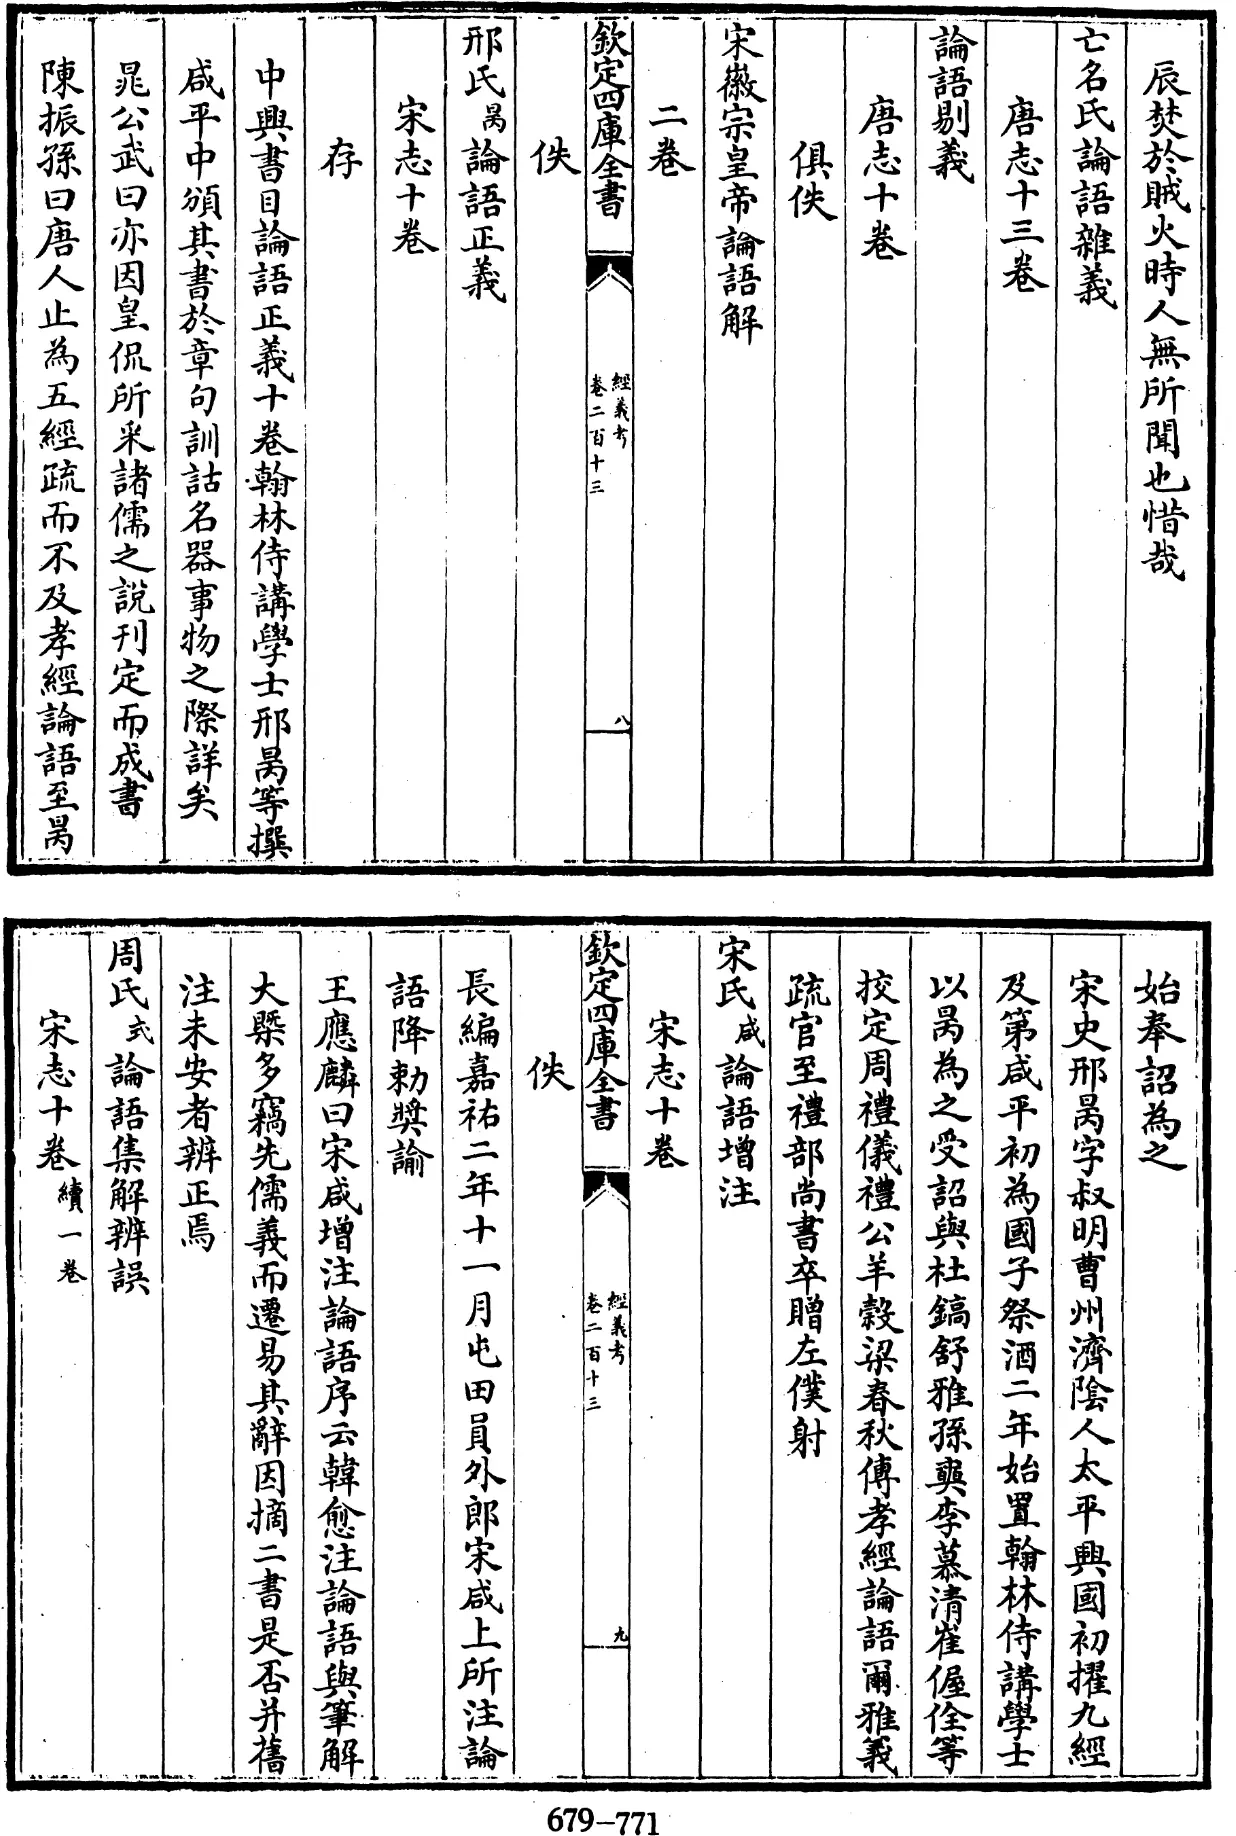 辰焚於賊火時人無所聞也惜哉
亡名氏論語雜義
唐志十三卷
論語剔義
唐志十卷
俱佚
宋徽宗皇帝論語解
二卷
欽定四庫全書
經義考
卷二百十三
八
佚
邢氏昺論語正義
宋志十卷
存
中興書目論語正義十卷翰林侍講學士邢昺等撰
咸平中頒其書於章句訓詁名器事物之際詳矣
晁公武曰亦因皇侃所采諸儒之說刊定而成書
陳振孫曰唐人止為五經疏而不及孝經論語至昺
始奉詔為之
宋史邢昺字叔明曹州濟陰人太平興國初擢九經
及第咸平初為國子祭酒二年始置翰林侍講學士
以昺為之受詔與杜鎬舒雅孫奭李慕清崔偓佺等
挍定周禮儀禮公羊穀梁春秋傳孝經論語爾雅義
疏官至禮部尚書卒贈左僕射
宋氏咸論語增注
宋志十卷
欽定四庫全書
經義考
卷二百十三
九
佚
長編嘉祐二年十一月屯田員外郎宋咸上所注論
語降勅奬諭
王應麟曰宋咸增注論語序云韓愈注論語與筆解
大槩多竊先儒義而遷易其辭因摘二書是否并舊
注未安者辨正焉
周氏式論語集解辨誤
宋志十卷續一卷
679-771